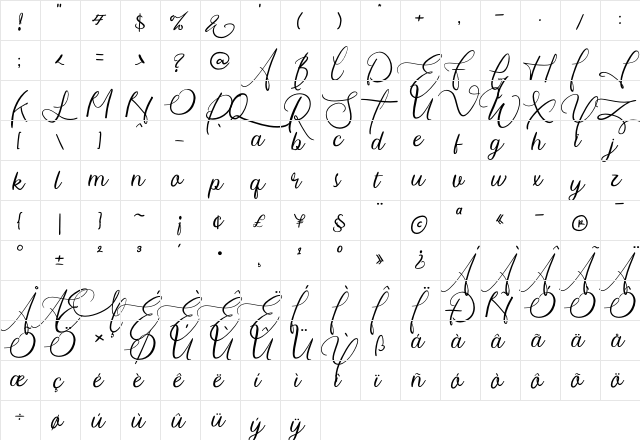 ! " # $ % & ' ( ) * + , - . / :
; < = > ? @ A B C D E F G H I J
K L M N O P Q R S T U V W X Y Z
[ \ ] ^ _ a b c d e f g h i j
k l m n o p q r s t u v w x y z
{ | } ~ ¡ ¢ £ ¥ § ¨ © ª « ¬ ® ¯
° ± ² ³ ´ · ¸ ¹ º » ¿ À Á Â Ã Ä
Å Æ Ç È É Ê Ë Ì Í Î Ï Ð Ñ Ò Ó Ô
Õ Ö × Ø Ù Ú Û Ü Ý ß à á â ã ä å
æ ç é è ê ë í ì î ï ñ ó ò ô õ ö
÷ ø ú ù û ü ý ÿ